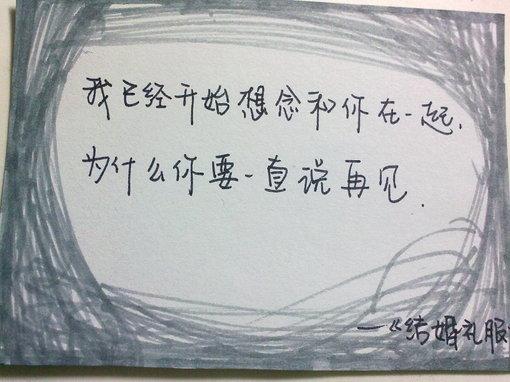 我已经开始想念和你在一起.
为什么你要一直说再见.
—《结婚礼服